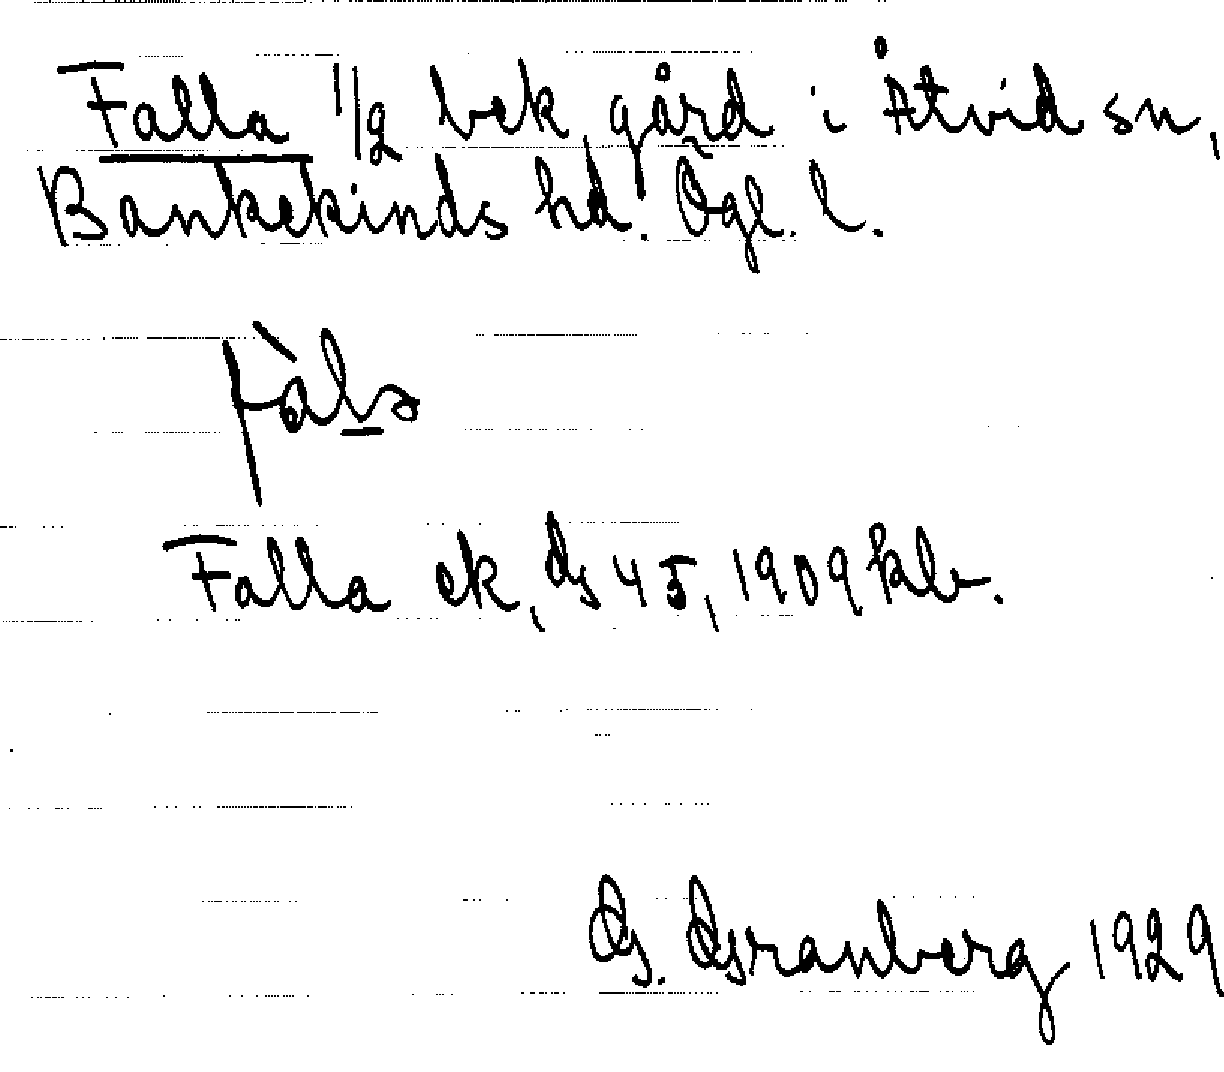 Falla 1/2 bek. gård i Åtvid sn,
Bankekinds hd. Ögl. l.
fàla
Falla ek, Gs 45, 1909 klr.
G. Granberg 1929